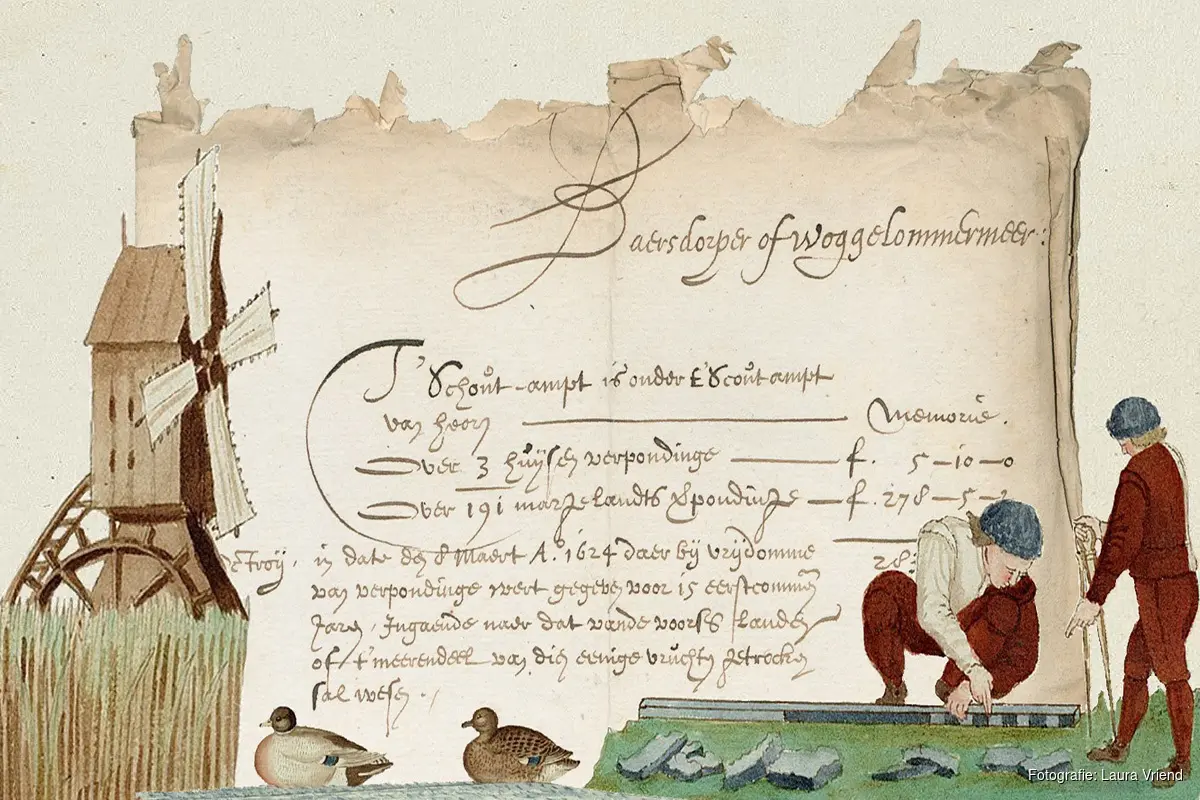 Baersdorper of Woggelommermeer:
T' Schout-ampt is onder t'Scoutampt
van Hoorn Memorie.
Over 3 huijsen verpondinge f. 5-10-0
Over 191 margelandts f. 278-5-
28
octroij, in date den 8 Maert A.º 1624 daer bij vrijdomme
van verpondinge wert gegeven voor 15 eerstcommen
Jaren, Ingaende naer dat vande voorss landen
of t'meerendeel van dien eenige vruchten getrocken
sal wesen.
Fotografie: Laura Vriend